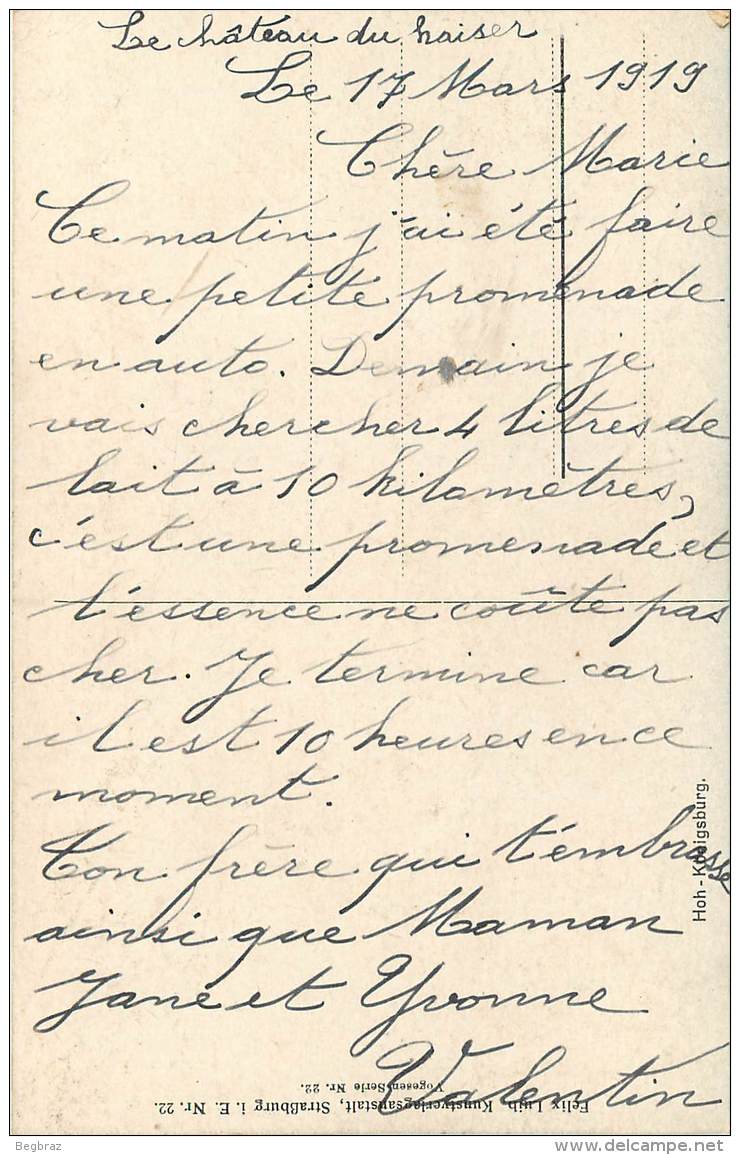 Le château du kaiser
Le 17 Mars 1919
Chère Marie
Ce matin j'ai été faire
une petite promenade
en auto. Demain je
vais chercher 4 litres de
lait à 10 kilomètres,
c'est une promenade et
l'essence ne coûte pas
cher. Je termine car
il est 10 heures en ce
moment.
Ton frère qui t'embrasse
ainsi que Maman
Jane et Yvonne
Valentin
Hoh-Königsburg.
Felix Luib, Kunstverlagsanstalt, Straßburg i. E. Nr. 22.
Vogesen Serie Nr. 22.
Begbraz
delcampe.net